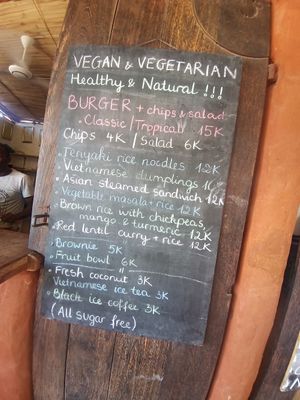 VEGAN & VEGETARIAN
Healthy & Natural !!!
BURGER + chips & salad
• Classic / Tropical 15K
Chips 4K / Salad 6K
• Teriyaki rice noodles 12K
• Vietnamese dumplings
• Asian steamed sandwich 12K
• Vegetable masala + rice 12K
• Brown rice with chickpeas,
mango & turmeric 12K
• Red lentil curry + rice 12K
• Brownie 5K
• Fruit bowl 6K
• Fresh coconut 3K
Vietnamese ice tea 3K
• Black ice coffee 3K
(All sugar free)